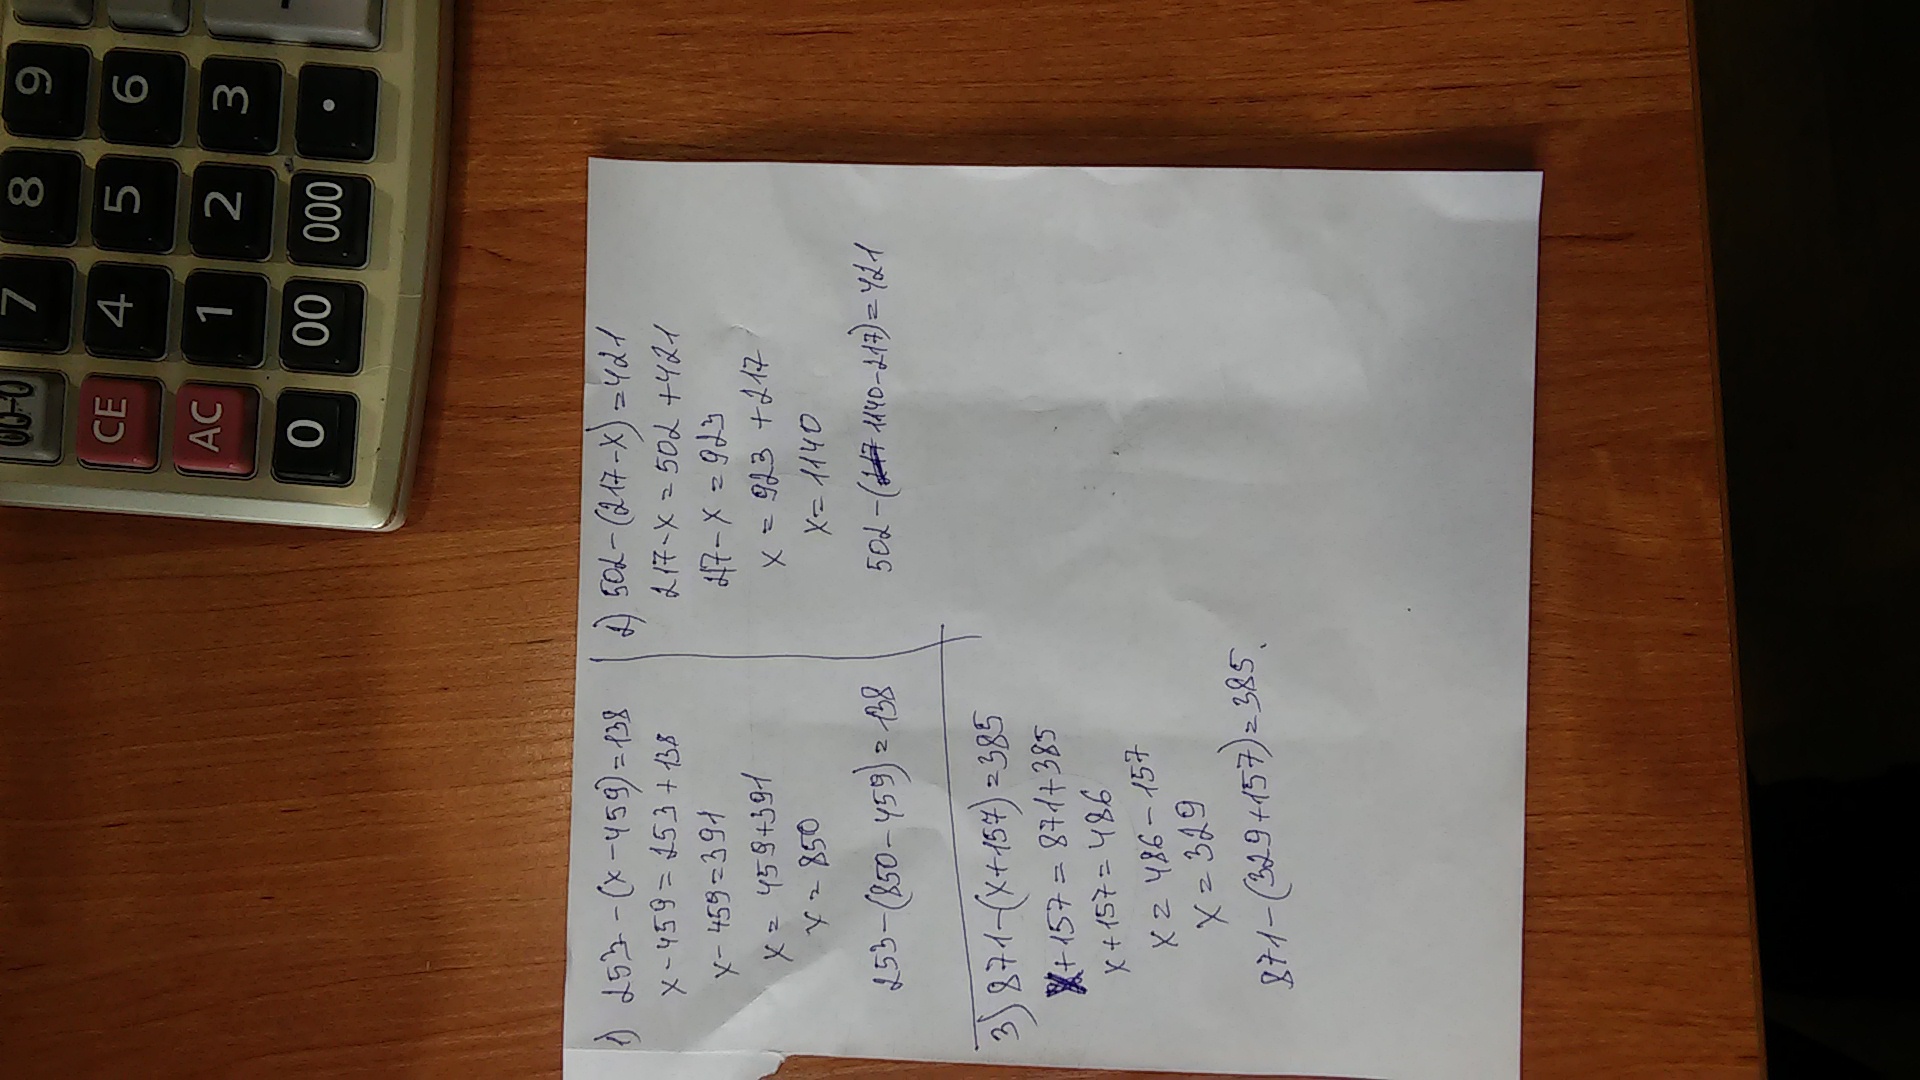 1) 253-(x-459)=138
x-459=253+138
x-459=391
x=459+391
x=850
253-(850-459)=138
2) 502-(217-x)=421
217-x=502+421
217-x=923
x=923+217
x=1140
502-(1140-217)=421
3) 871-(x+157)=385
x+157=871+385
x+157=486
x=486-157
x=329
871-(329+157)=385.
9
6
3
.
8
5
2
000
7
4
1
00
CE
AC
0